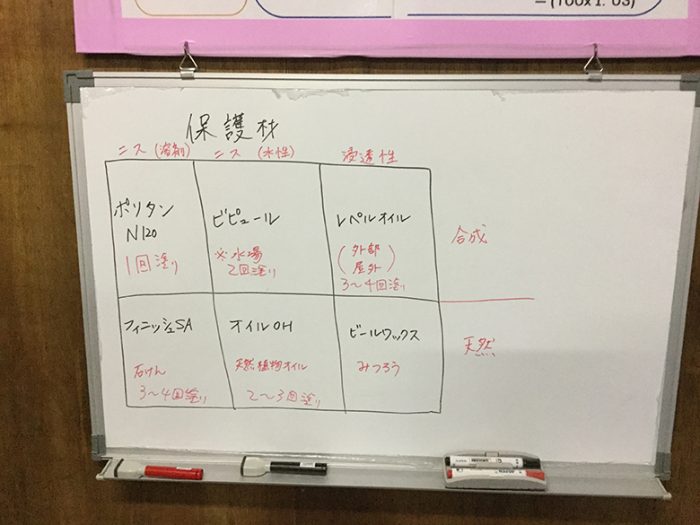 = (100x1.03)
保護材
ニス(溶剤) ニス (水性) 浸透性
ポリタン
N120
1回塗り
ビピュール
※水場
2回塗り
レペルオイル
(外部
屋外)
3〜4回塗り
合成
フィニッシュSA
石けん
3〜4回塗り
オイルOH
天然植物オイル
2〜3回塗り
ビールワックス
みつろう
天然